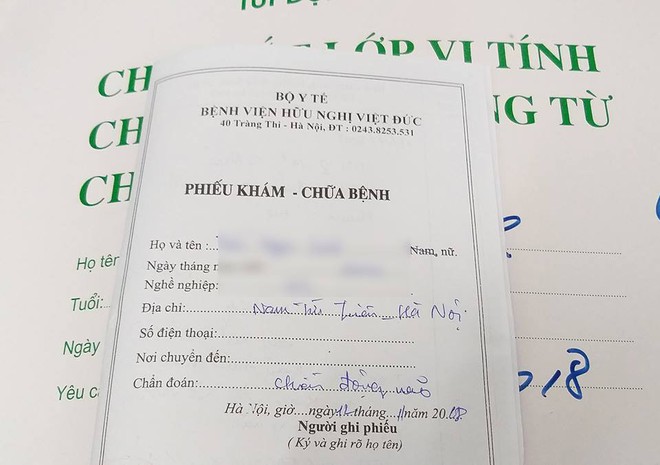 TÚI ĐỰ
CH LỚP VI TÍNH
CH NG TỪ
CH
BỘ Y TẾ
BỆNH VIỆN HỮU NGHỊ VIỆT ĐỨC
40 Tràng Thi - Hà Nội, ĐT : 0243.8253.531
PHIẾU KHÁM - CHỮA BỆNH
Họ và tên :... Nam, nữ.
Ngày tháng n
Nghề nghiệp:
Địa chỉ: Nam Từ Liêm Hà Nội
Số điện thoại:
Nơi chuyển đến:
Chẩn đoán: chấn động não
Hà Nội, giờ....ngày 12 tháng 11 năm 2018
Người ghi phiếu
( Ký và ghi rõ họ tên)
Họ tên
Tuổi:
Ngày
Yêu c
018